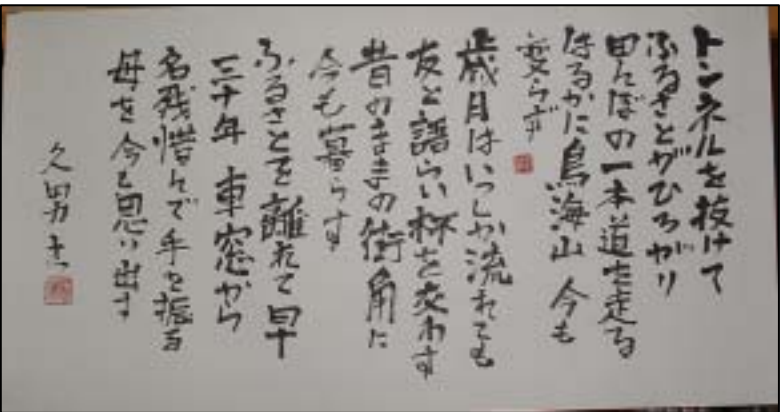 トンネルを抜けて
ふるさとがひろがり
田んぼの一本道を走る
はるかに鳥海山 今も
変らず
歳月はいつしか流れても
友と語らい杯を交わす
昔のままの街角に
今も暮らす
ふるさとを離れて早
三十年 車窓から
名残惜んで手を振る
母を今も思い出す
久男